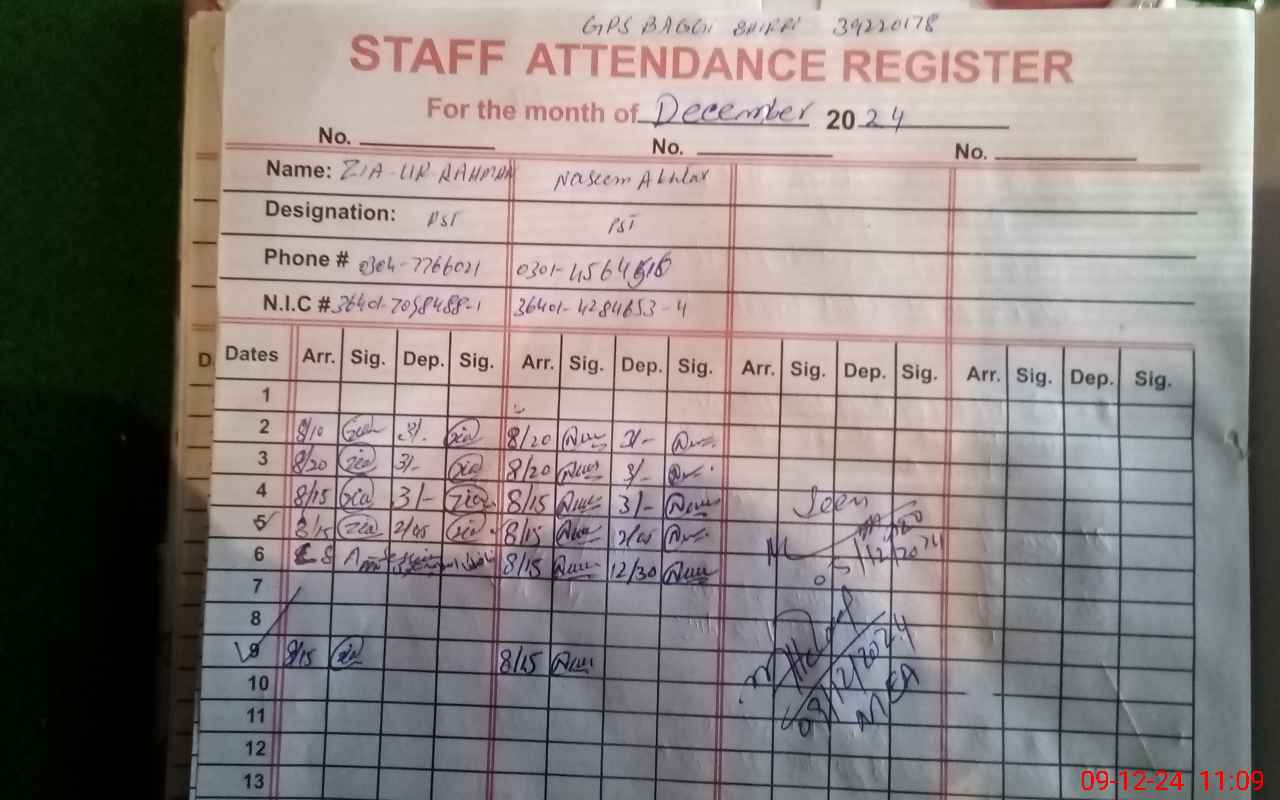 GPS BAGGI 39220178
STAFF ATTENDANCE REGISTER
For the month of December 2024
No. No. No.
Name: ZIA-UR-RAHMAN Naseem Akhtar
Designation: PST PST
Phone # 0304-7766021 0301-4564
N.I.C # 36401-7098488-1 36401-4284653-4
Dates Arr. Sig. Dep. Sig. Arr. Sig. Dep. Sig. Arr. Sig. Dep. Sig. Arr. Sig. Dep. Sig.
1
2 8/10 Zia 3/- Zia 8/20 3/-
3 8/20 Zia 3/- Zia 8/20 3/-
4 8/15 Zia 3/- Zia 8/15 3/-
Seen
5 8/15 Zia 2/05 Zia 8/15 2/05
05/12/2024
6 8/15 12/30
7
8
9 8/15 Zia 8/15
09/12/2024
MEA
10
11
12
13
09-12-24 11:09